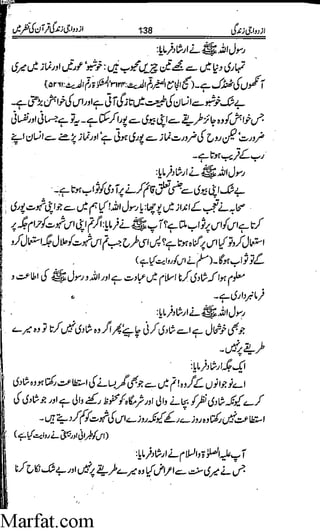 ازدواجی زندگی 138 ازدواجی زندگی قرآن کی نظر میں
رسول اللہ ﷺ نے ارشاد فرمایا:
تمہاری دنیا میں سے مجھے تین چیزیں محبوب ہیں: خوشبو، عورتیں اور نماز میں میری
آنکھوں کی ٹھنڈک ہے۔ (صحیح الجامع الصغیر رقم الحدیث: ۳۱۲۴، المشکوٰۃ رقم الحدیث: ۵۲۶۱)
بے شک خوشبو سے انسان کی طبیعت میں تازگی آتی ہے اور اس کی خواہش بڑھتی ہے۔
جس خوش کو وہ جائز طریقے سے اپنی بیوی سے پورا کر سکتا ہے۔ یہ تو ہے جسمانی اور نفسانی
ضرورت لیکن روح کی ضرورت نماز سے پوری ہوتی ہے اور نماز پڑھنے سے انسان اپنے
رب کے قریب ہوتا ہے۔
رسول اللہ ﷺ نے ارشاد فرمایا:
بے شک اپنی بیوی سے جنسی تعلق قائم کرنے پر آدمی کو ثواب ہوتا ہے۔
صحابہ نے تعجب کے انداز میں پوچھا: یا رسول اللہ! کیا ہم میں سے جو اپنی شہوت پوری
کرتا ہے اس کو اس پر ثواب ملتا ہے؟ آپ ﷺ نے فرمایا: اگر تم اپنی اس شہوت کو حرام جگہ پر
استعمال کرو تو کیا اس پر گناہ ہوتا ہے؟ پس اسی طرح جب تم اس شہوت کو حلال جگہ استعمال کرو
گے تو ثواب ہوگا۔ (مسلم نے اس کو روایت کیا ہے)
معلوم ہوا کہ شادی کرنا اسلام میں عبادت ہے اور اللہ و رسول ﷺ کی اطاعت و
فرمانبرداری ہے۔
رسول اللہ ﷺ نے ارشاد فرمایا:
جو بھی خوشحال ہے اسے شادی کرنی چاہیے پھر اگر وہ شادی نہیں کرتا تو وہ میرے
طریقے پر نہیں۔
ایک جگہ ارشاد فرمایا:
اے نوجوانوں کے گروہ! تم میں سے جو بھی گھر بسانے کی استطاعت رکھتا ہو وہ شادی
کرے کیونکہ شادی نظر کو بچانے والی اور شرمگاہ کو محفوظ رکھنے والی ہے اور جو شادی کی
استطاعت نہیں رکھتا وہ روزے رکھے کیونکہ روزے اس کی شہوت کو کم کر دیتے ہیں۔
(اس کو طبرانی اور بیہقی نے روایت کیا ہے)
آپ علیہ الصلوٰۃ والسلام نے ارشاد فرمایا:
جس نے میری سنت سے اعراض کیا وہ میرے طریقے پر نہیں اور بے شک نکاح کرنا
Marfat.com